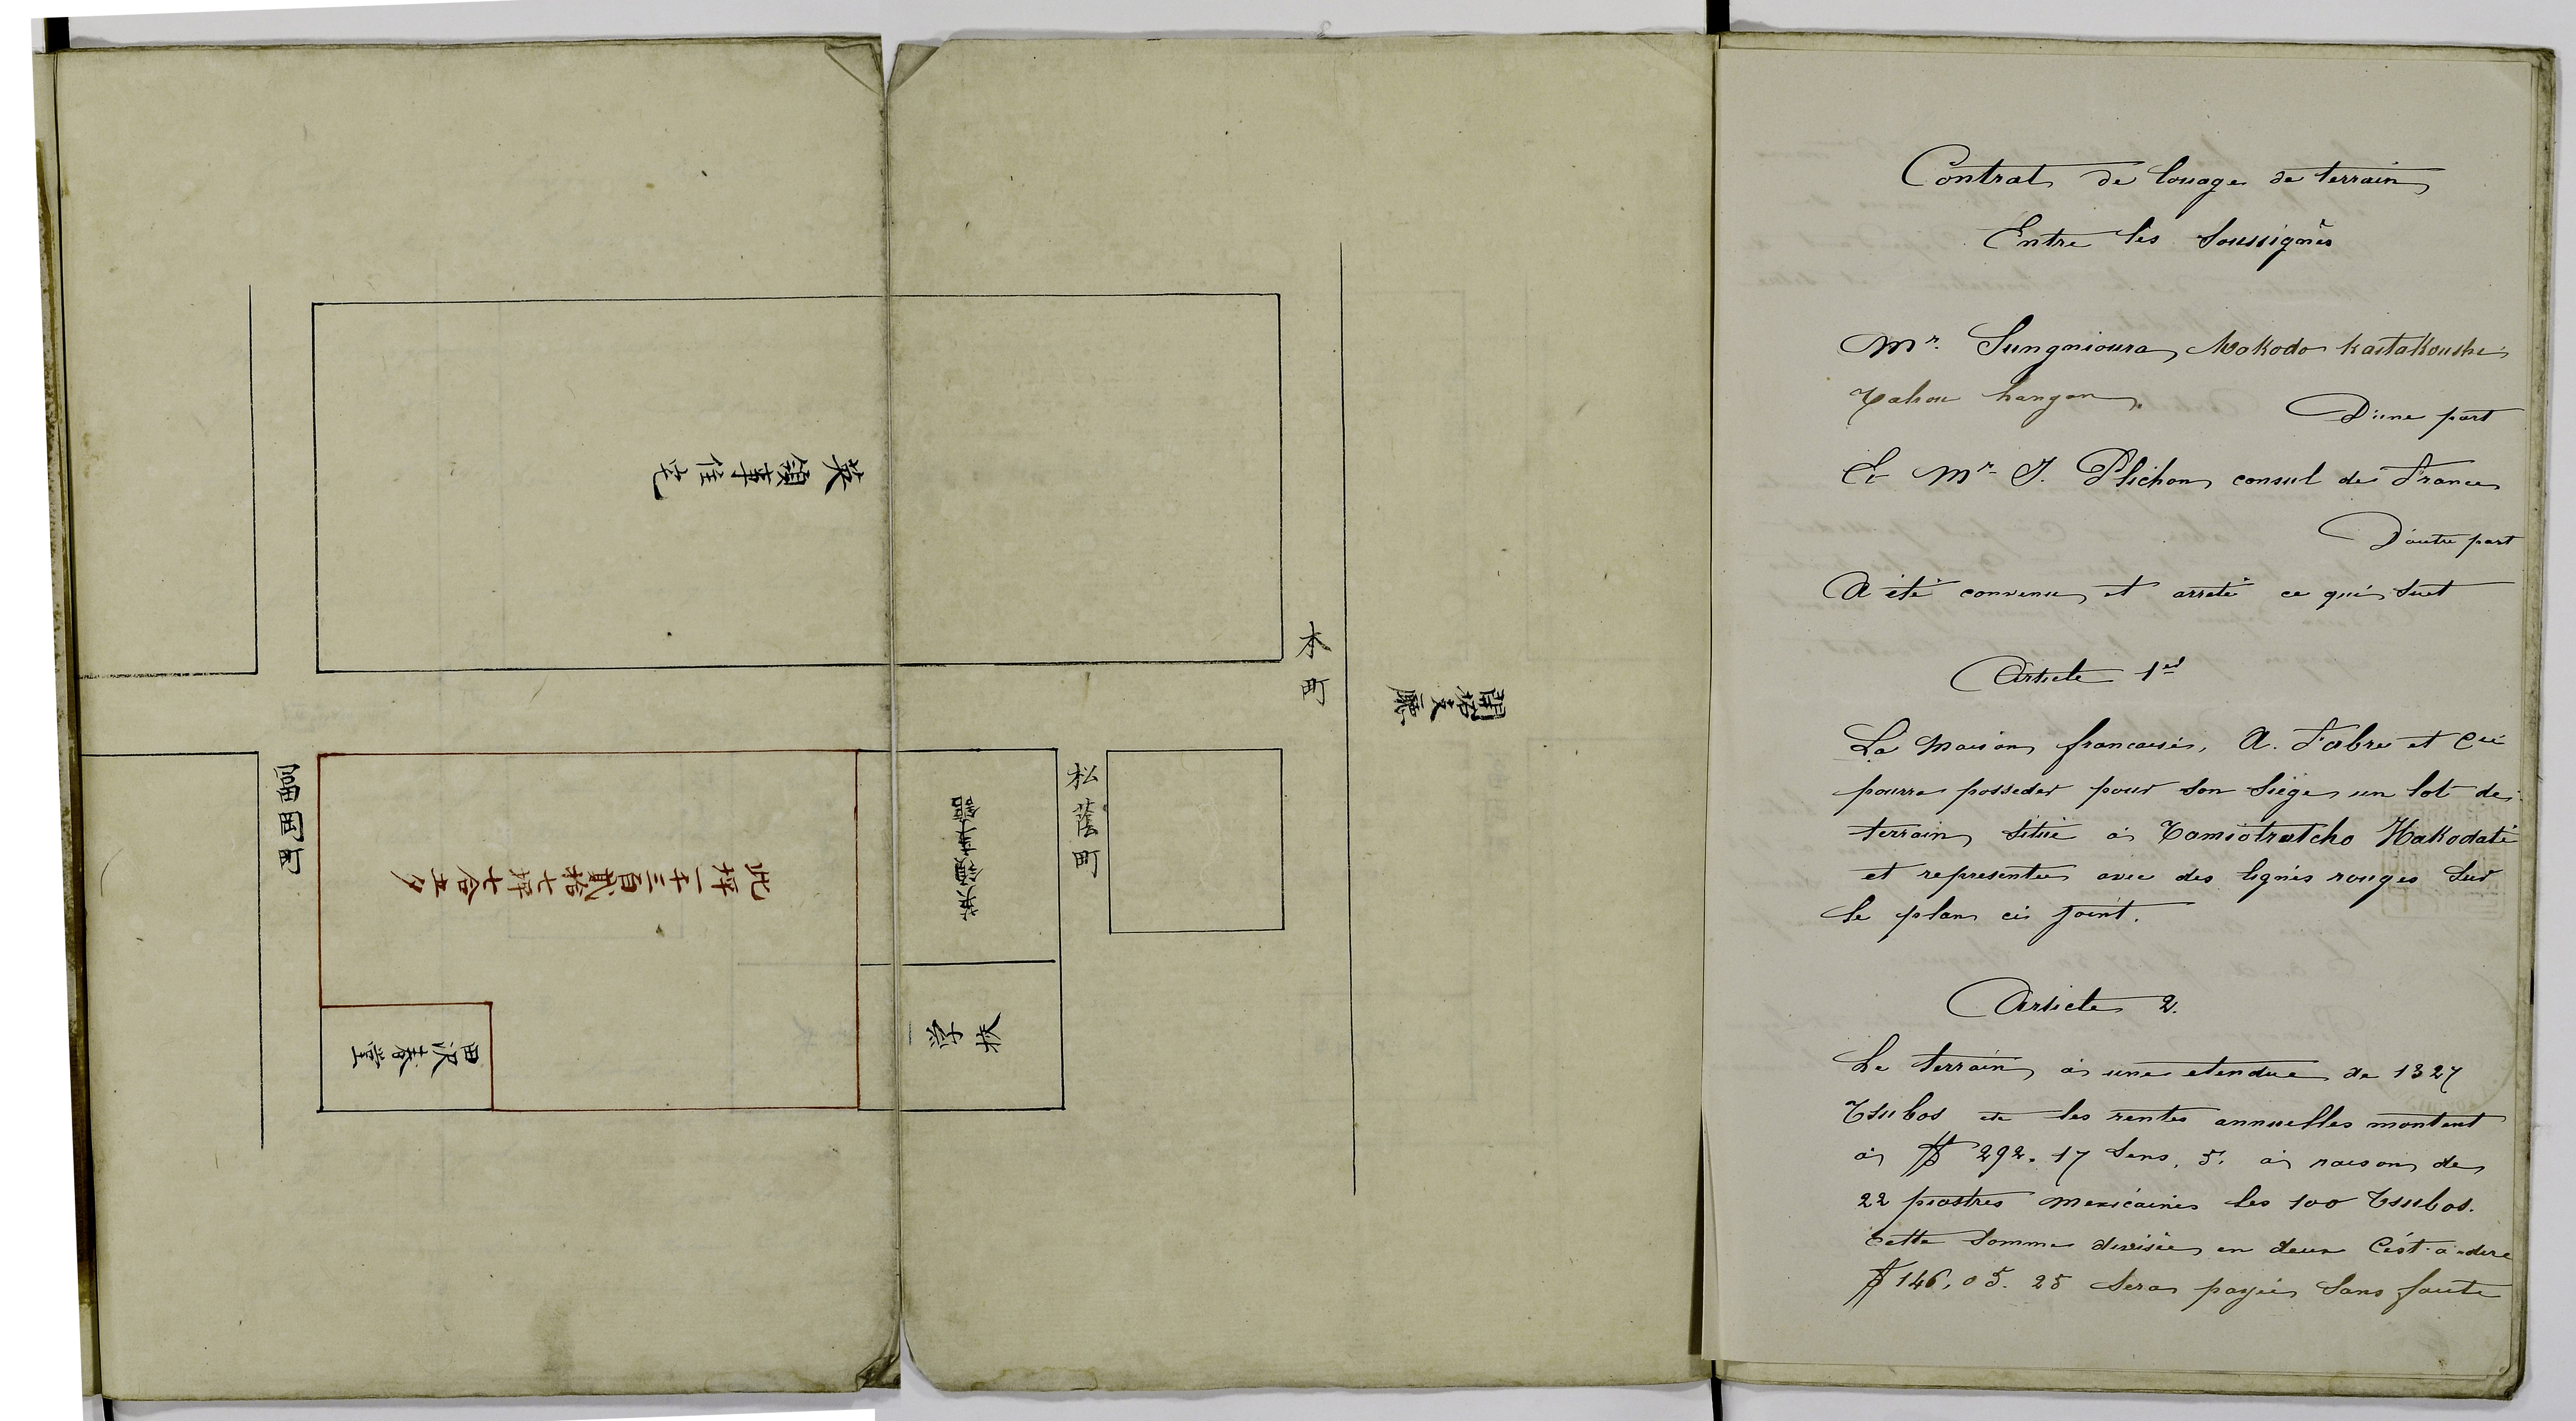 英領事住宅
本町
開拓支廳
富岡町
此坪一千三百貳拾七坪七合五夕
松蔭町
田沢春堂
学校
Contrat de louage de terrain
Entre les soussignés
Mr. Sungnioura
hangan
D'une part
Et Mr. J. Plichon consul de France
D'autre part
A été convenu et arrêté ce qui suit
Article 1er
La Maison francaise, A. Fabre et Cie
pourra posseder pour son siége un lot de
terrain situé à Tomiotratcho Hakodaté
et representée avec des lignes rouges sur
le plan ci joint.
Article 2.
Le terrain à une etendue de 1327
Tsubos et les rentes annuelles montent
à $ 292. 17 Sens. 5. à raison de
22 piastres mexicaines les 100 Tsubos.
cette somme divisée en deux C'est-a-dire
$ 146, 05. 25 sera payée sans faute